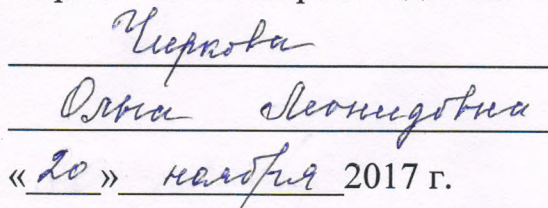 Чиркова
Ольга Леонидовна
«20» ноября 2017 г.